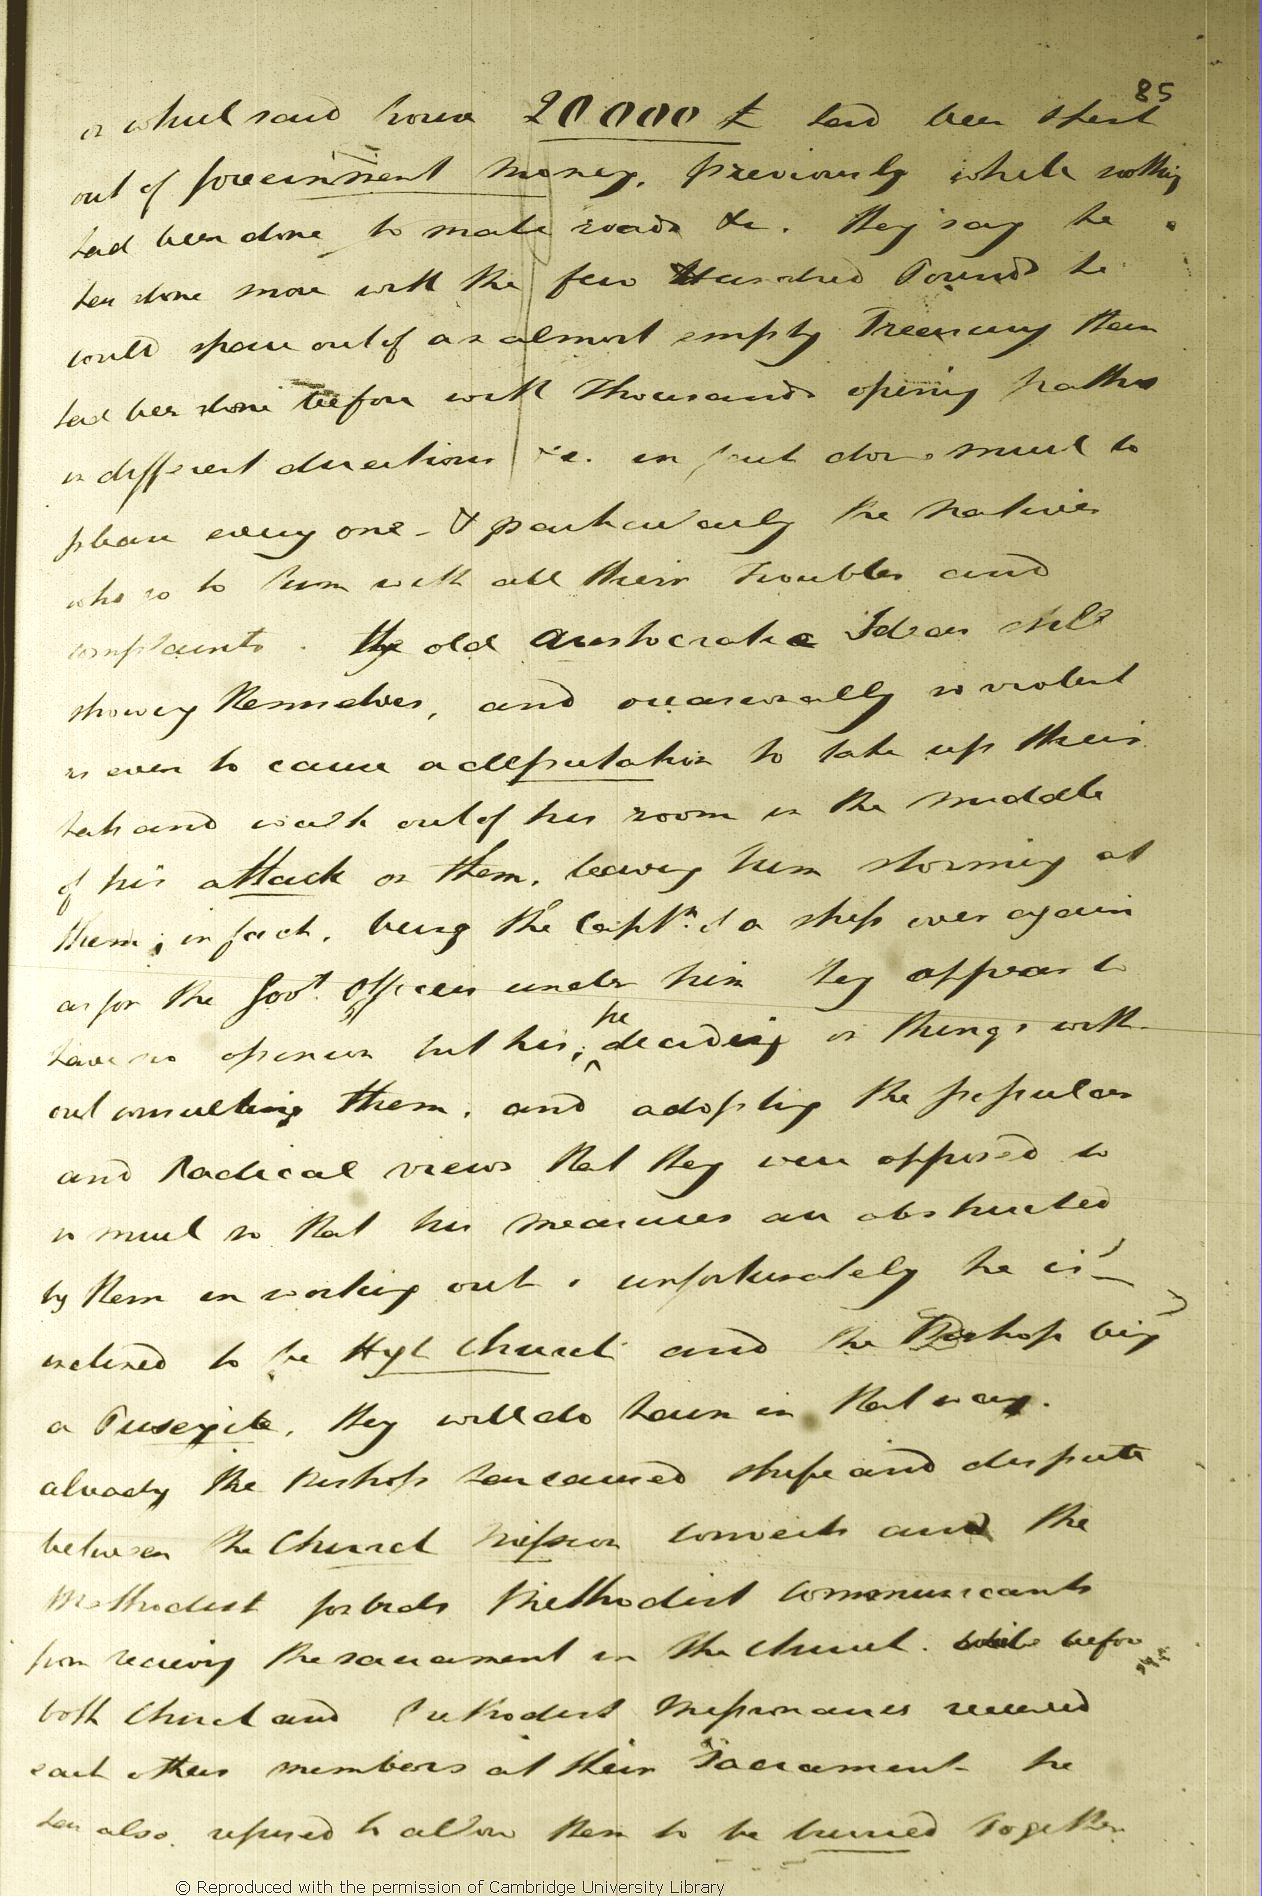 85
on which said house 20000 £ had been spent
out of government money, previously while nothing
had been done to make roads &c. they say he
has done more with the few Hundred Pounds he
could spare out of an almost empty Treasury than
had been done before with Thousands opening paths
in different directions &c. in fact done much to
please every one - & particularly the natives
who go to him with all their Troubles and
complaints. the old aristocratic Ideas still
showing themselves, and occasionally so violent
as even to cause a deputation to take up their
hats and walk out of his room in the middle
of his attack on them, leaving him storming at
them; in fact, being the Captn. of a ship over again
as for the Govt. Officers under him they appear to
have no opinion but his, he deciding on things with-
out consulting them, and adopting the popular
and Radical views that they were opposed to
so much so that his measures are obstructed
by them in working out. unfortunately he is
inclined to be High Church and the Bishop being
a Puseyite, they will do harm in that way.
already the Bishop has caused strife and dispute
between the Church Mission converts and the
Methodist forbids Methodist communicants
from receiving the sacrament in the church. while before
both Church and Methodist Missionaries received
each others members at their Sacrament he
has also refused to allow them to be buried Together
© Reproduced with the permission of Cambridge University Library